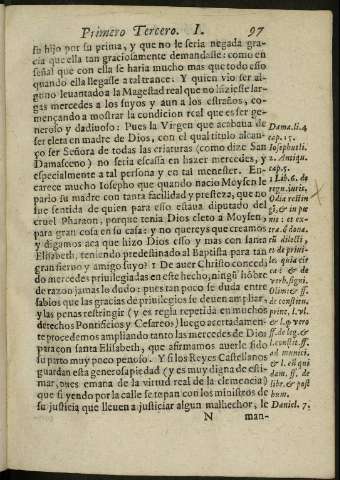 Primero Tercero. I. 97
su hijo por su prima, y que no le seria negada gra-
cia que ella tan graciosamente demandasse: como en
señal que con ella se haria mucho mas que todo esso
quando ella llegasse a tal trance. Y quien vio ser al-
guno leuantado a la Magestad real que no hiziesse lar-
gas mercedes a los suyos y aun a los estraños, co-
mençando a mostrar la condicion real que es ser ge-
neroso y dadiuoso: Pues la Virgen que acabaua de
ser eleta en madre de Dios, con el qual titulo alcan-
ço ser Señora de todas las criaturas (como dize San
Damasceno) no seria escassa en hazer mercedes, y
especialmente a tal persona y en tal menester. En-
carece mucho Iosepho que quando nacio Moysen le
pario su madre con tanta facilidad y presteza, que no
fue sentida de quien para esso estaua diputado del
cruel Pharaon, porque tenia Dios eleto a Moysen,
para gran cosa en su casa: y no quereys que creamos
y digamos aca que hizo Dios esso y mas con santa
Elisabeth, teniendo predestinado al Baptista para tan
gran sieruo y amigo suyo? I De auer Christo concedi
do mercedes priuilegiadas en este hecho, ningũ hõbre
de razon jamas lo dudo: pues tan poco se duda entre
sabios que las gracias de priuilegios se deuen ampliar,
y las penas restringir (y es regla repetida en muchos
derechos Pontificios y Cesareos) luego acertadamen-
te procedemos ampliando tanto las mercedes de Dios
para con santa Elisabeth, que afirmamos auerle sido
su parto muy poco penoso. Y si los Reyes Castellanos
guardan esta generosa piedad (y es muy digna de esti-
mar, pues emana de la virtud real de la clemencia)
que si yendo por la calle se topan con los ministros de
su justicia que lleuen a justiciar algun malhechor, le
N man-
Dama. li. 4
cap. 15.
Iosephus li.
2. Antiqu.
cap. 5.
1 Lib. 6. de
regu. iuris.
Odia restrin
gi, & in pe
nis: et ex-
tra. de dona.
cũ dilecti,
et de priui-
leg. quia cir
ca: & de
verb. signi.
Olim: & ff.
de constitu.
princ. l. vl.
& l. p vero
ff. de leg. &
l. constit. ff.
ad munici.
& l. est qui
dam. ff. de
lib. & post
hum.
Daniel. 7.